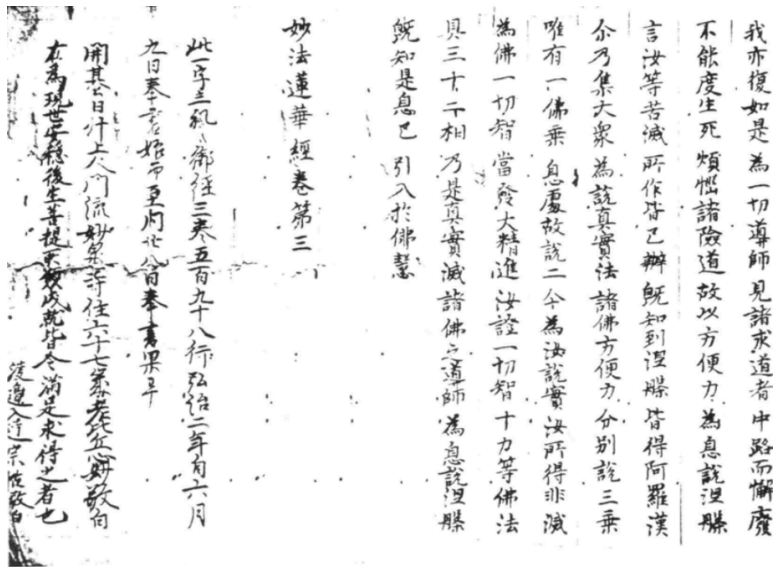 我亦復如是 為一切導師 見諸求道者 中路而懈廢
不能度生死 煩惱諸險道 故以方便力 為息說涅槃
言汝等苦滅 所作皆已辦 既知到涅槃 皆得阿羅漢
尒乃集大衆 為說真實法 諸佛方便力 分別說三乗
唯有一佛乗 息處故說二 今為汝說實 汝所得非滅
為佛一切智 當發大精進 汝證一切智 十力等佛法
具三十二相 乃是真實滅 諸佛之導師 為息說涅槃
既知是息已 引入於佛慧
妙法蓮華經卷第三
此一字三礼御経三巻五百九十八行弘治二年 六月
九日奉書始而至同廿八日奉書畢
開基 日什上人門流妙 寺住六十七歳 敬白
右為現世安穏後生菩提 成就皆令満足求得之者也
渡邊入道宗 敬白